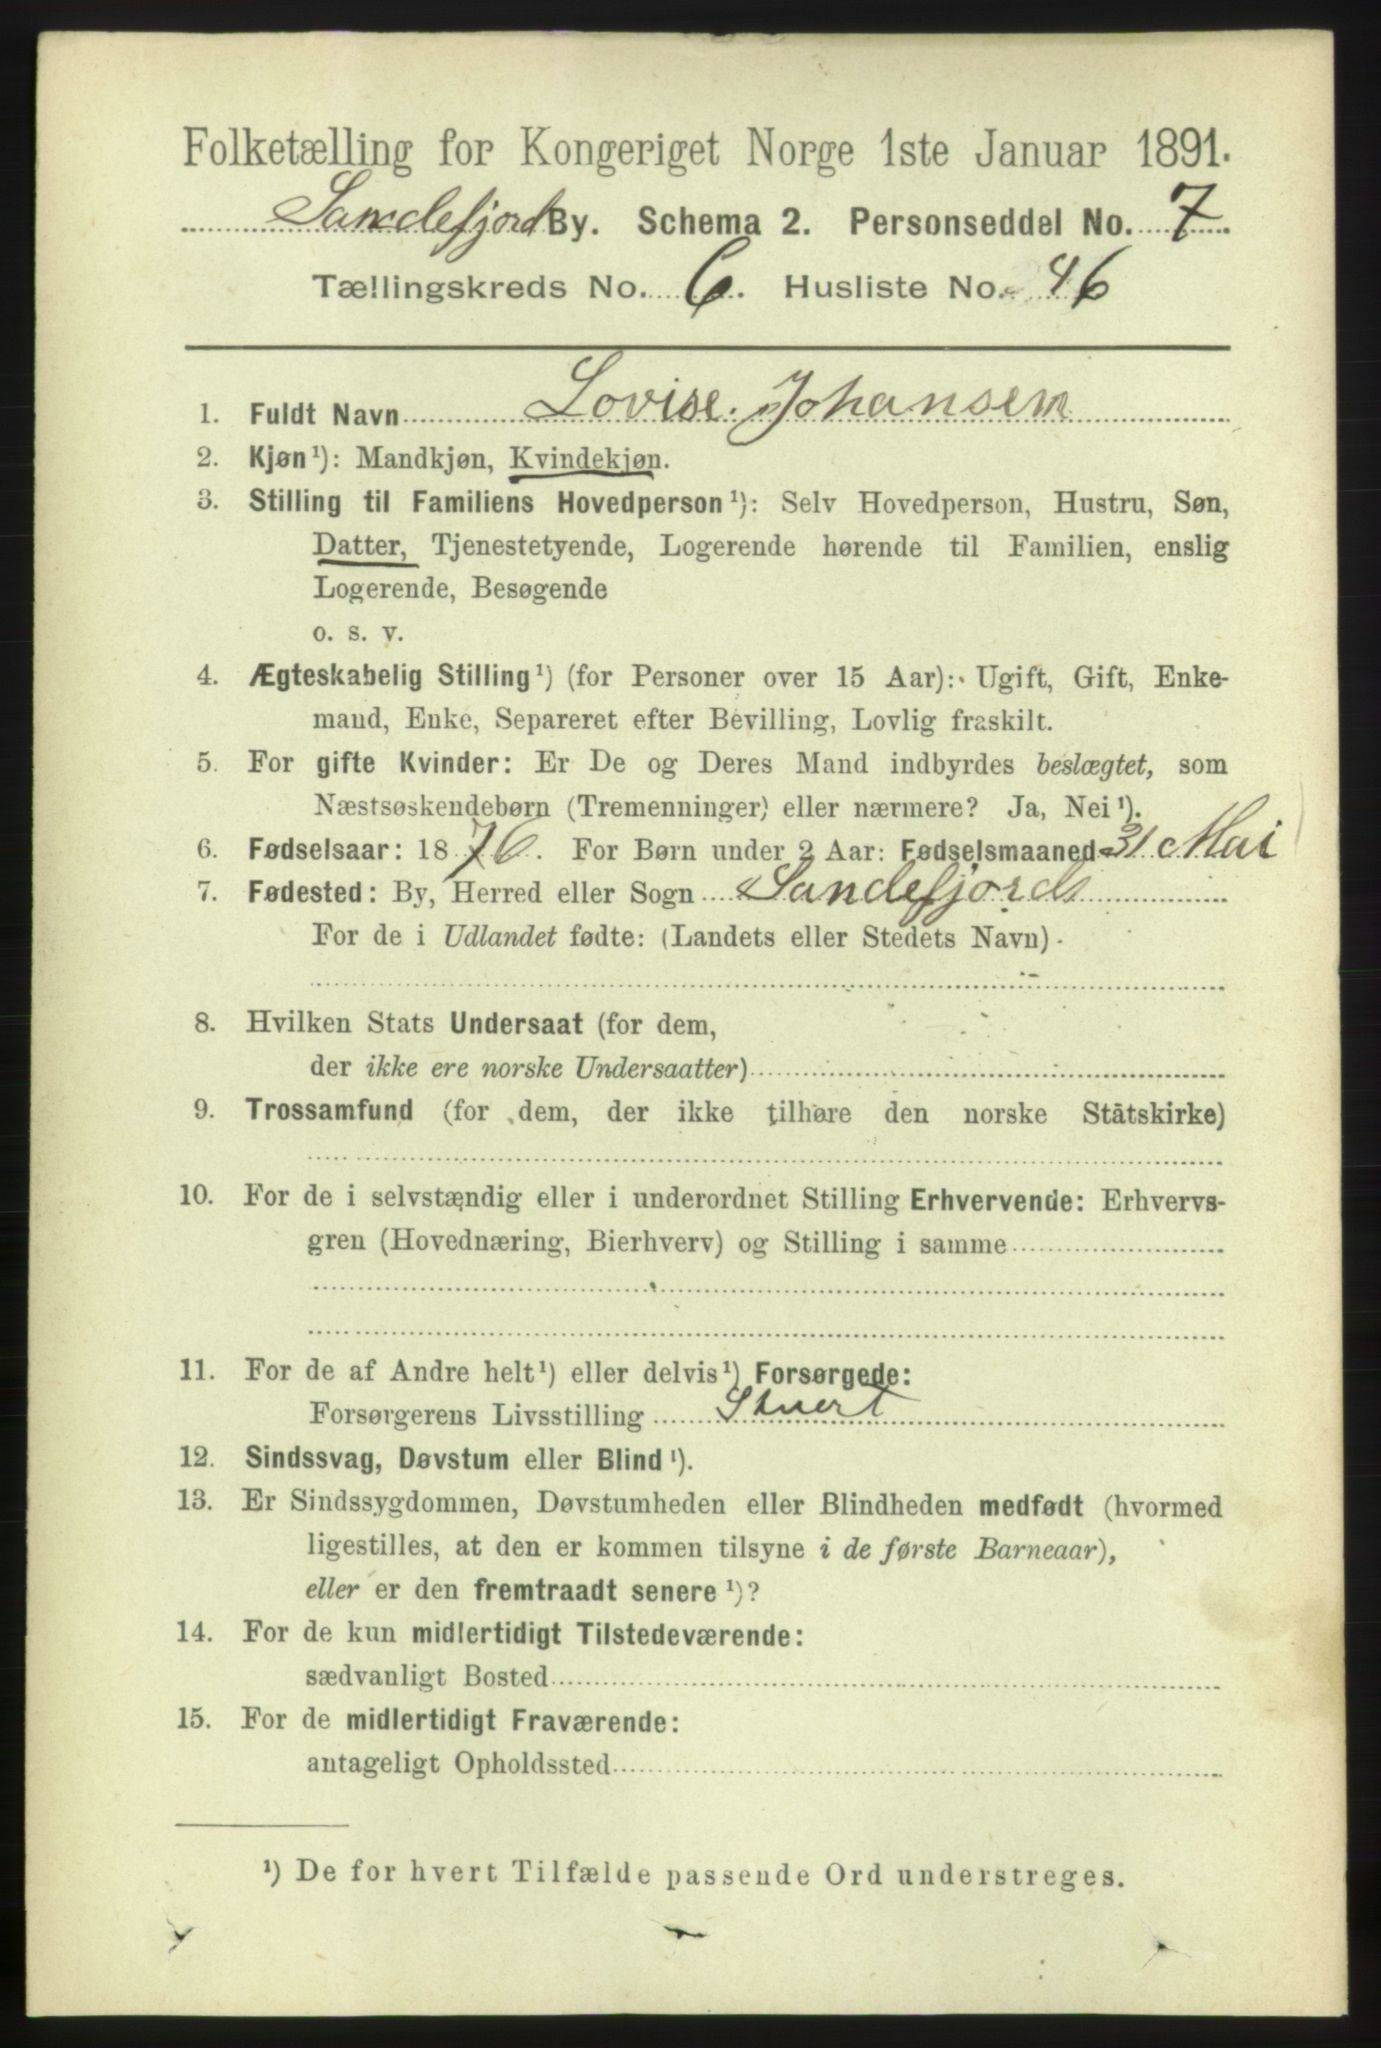 Folketælling for Kongeriget Norge 1ste Januar 1891.
Sandefjord By. Schema 2. Personseddel No. 7
Tællingskreds No. 6. Husliste No. 46
1. Fuldt Navn Lovise Johansen
2. Kjøn¹): Mandkjøn, Kvindekjøn.
3. Stilling til Familiens Hovedperson¹): Selv Hovedperson, Hustru, Søn,
Datter, Tjenestetyende, Logerende hørende til Familien, enslig
Logerende, Besøgende
o. s. v.
4. Ægteskabelig Stilling¹) (for Personer over 15 Aar): Ugift, Gift, Enke-
mand, Enke, Separeret efter Bevilling, Lovlig fraskilt.
5. For gifte Kvinder: Er De og Deres Mand indbyrdes beslægtet, som
Næstsøskendebørn (Tremenninger) eller nærmere? Ja, Nei¹).
6. Fødselsaar: 1876. For Børn under 2 Aar: Fødselsmaaned 31 Mai
7. Fødested: By, Herred eller Sogn Sandefjord
For de i Udlandet fødte: (Landets eller Stedets Navn)
8. Hvilken Stats Undersaat (for dem,
der ikke ere norske Undersaatter)
9. Trossamfund (for dem, der ikke tilhøre den norske Statskirke)
10. For de i selvstændig eller i underordnet Stilling Erhvervende: Erhvervs-
gren (Hovednæring, Bierhverv) og Stilling i samme
11. For de af Andre helt¹) eller delvis¹) Forsørgede:
Forsørgerens Livsstilling
12. Sindssvag, Døvstum eller Blind¹).
13. Er Sindssygdommen, Døvstumheden eller Blindheden medfødt (hvormed
ligestilles, at den er kommen tilsyne i de første Barneaar),
eller er den fremtraadt senere¹)?
14. For de kun midlertidigt Tilstedeværende:
sædvanligt Bosted
15. For de midlertidigt Fraværende:
antageligt Opholdssted
¹) De for hvert Tilfælde passende Ord understreges.